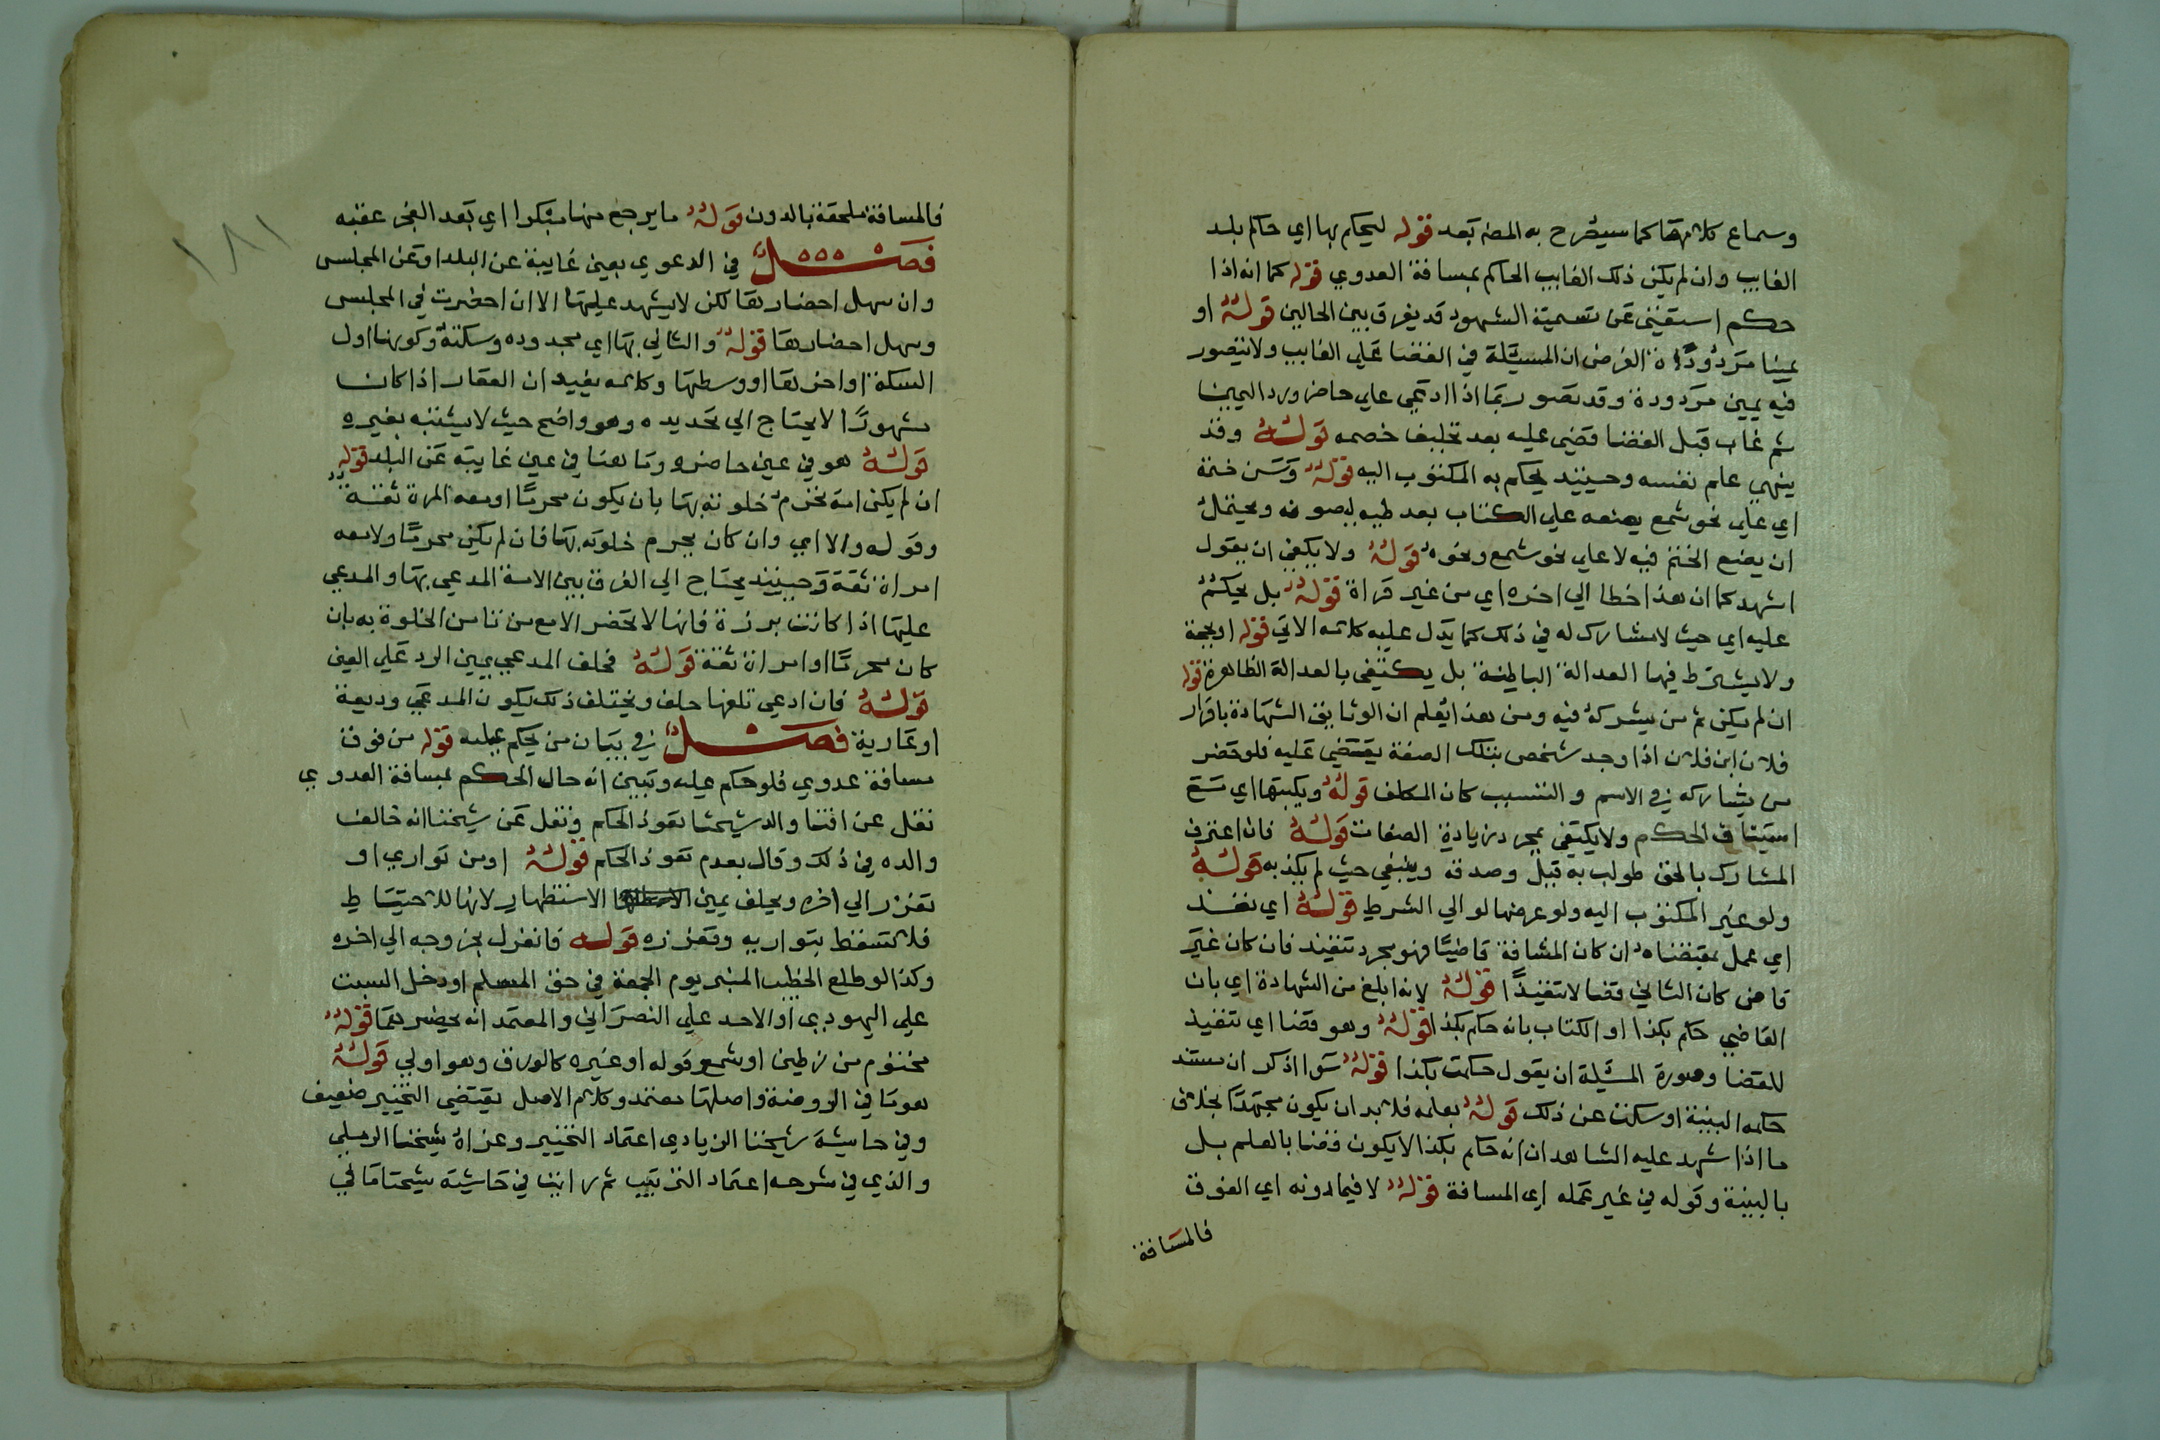 وسماع كلامهما كما سيصرح به المصـ بعد قوله ليحكم بها اي حاكم بلد
الغايب وان لم يكن ذلك الغايب الحاكم بمسافة العدوي قوله كما انه اذا
حكم استغني عن تسمية الشهود قد يفرق بين الحالين قوله او
يمينا مردودة الغرض ان المسيلة في القضا علي الغايب ولا يتصور
فيه يمين مردودة وقد تصور بما اذا ادعي علي حاضر ورد اليمين
ثم غاب قبل القضا قضي عليه بعد تحليف خصمه قوله وقد
ينهي علم نفسه وحينيذ يحكم به المكتوب اليه قوله وسن ختمه
اي علي نحو شمع يضعه علي الكتاب بعد طيه ليصونه ويحتمل
ان يضع الختم فيه لا علي نحو شمع ونحوه قوله ولا يكفي ان يقول
اشهد كما ان هذا خطا الي اخره اي من غير قراة قوله بل يحكم
عليه اي حيث لا مشارك له في ذلك كما يدل عليه كلامه الاتي قوله او بحجة
ولا يشترط فيها العدالة الباطنة بل يكتفي بالعدالة الظاهرة قوله
ان لم يكن ثم من يشركه فيه ومن هذا يعلم ان الوثايق الشهادة باقرار
فلان ابن فلان اذا وجد شخص بتلك الصفة يقضي عليه فلو حضر
من يشاركه في الاسم والنسب كان المكلف قوله ويكتبها اي مع
استيناف الحكم ولا يكتفي بمجرد زيادة الصفات قوله فان اعترف
المشارك بالحق طولب به قبل وصدقه وينبغي حيث لم يكذبه قوله
ولو غير المكتوب اليه ولو عرضها لوالي الشرط قوله اي نفذ
اي عمل بمقتضاه ان كان المشافه قاضيا فهو مجرد تنفيذ فان كان غير
قاض كان الثاني قضا لا تنفيذا قوله لانه ابلغ من الشهادة اي بان
القاضي حكم بكذا او الكتاب بانه حكم بكذا قوله وهو قضا اي تنفيذ
للقضا وصورة المسيلة ان يقول حكمت بكذا قوله سوا اذكر ان مستند
حكمه البينة او سكت عن ذلك قوله بعلمه فلا بد ان يكون مجتهدا بخلاف
ما اذا شهد عليه الشاهدان انه حكم بكذا لا يكون قضا بالعلم بل
بالبينة وقوله في غير عمله اي المسافة قوله لا فيما دونه اي الفوق
فالمسافة
١٨١
فالمسافة ملحقة بالدون قوله ما يرجع منها مبكرا اي بعد الفجر عقبه
فصل في الدعوي بعين غايبة عن البلد او عن المجلس
وان سهل احضارها لكن لا يشهد عليها الا ان احضرت في المجلس
وسهل احضارها قوله والثاني بها اي بحدوده وسكته وكونها اول
السكة او اخرها او وسطها وكلامه يفيد ان العقار اذا كان
مشهورا لا يحتاج الي تحديده وهو واضح حيث لا يشتبه بغيره
قوله هو في عين حاضرة وما هنا في عين غايبه عن البلد قوله
ان لم يكن امة تحرم خلوته بها بان يكون محرما او معه امراة ثقة
وقوله والا اي وان كان يحرم خلوته بها فان لم يكن محرما ولا معه
امراة ثقة وحينيذ يحتاج الي الفرق بين الامة المدعي بها والمدعي
عليها اذا كانت برزة فانها لا تحضر الا مع من تامن الخلوة به بان
كان محرما او امراة ثقة قوله فحلف المدعي يمين الرد علي العين
قوله فان ادعي تلفها حلف ويختلف ذلك بكون المدعي وديعة
او عارية فصل في بيان من يحكم عليه قوله من فوق
مسافة عدوي فلو حكم عليه وتبين انه حال الحكم بمسافة العدوي
نقل عن افتا والد شيخنا نفوذ الحكم ونقل عن شيخنا انه خالف
والده في ذلك وقال بعدم نفوذ الحكم قوله او من تواري او
تعزز الي اخره ويحلف يمين الاستظهار لانها للاحتياط
فلا تسقط بتواريه وتعززه قوله فانعزل بخروجه الي اخره
وكذا لو طلع الخطيب المنبر يوم الجمعة في حق المسلم او دخل السبت
علي اليهودي او الاحد علي النصراني والمعتمد انه يحضرهما قوله
مختوم من طين او شمع قوله او غيره كالورق وهو اولي قوله
هو ما في الروضة واصلها معتمد وكلام الاصل يقتضي التخيير ضعيف
وفي حاشية شيخنا الزيادي اعتماد التخيير وعزاه شيخنا الرملي
والذي في شرحه اعتماد الترتيب ثم رايت في حاشية شيخنا ما في